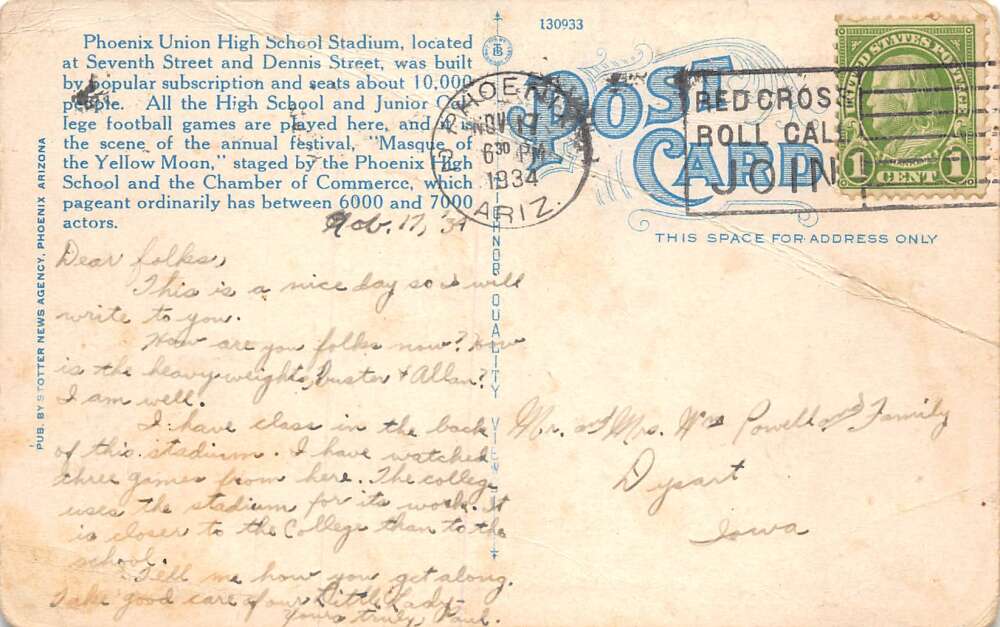 130933
Phoenix Union High School Stadium, located
at Seventh Street and Dennis Street, was built
by popular subscription and seats about 10,000
people. All the High School and Junior Col-
lege football games are played here, and it is
the scene of the annual festival, "Masque of
the Yellow Moon," staged by the Phoenix High
School and the Chamber of Commerce, which
pageant ordinarily has between 6000 and 7000
actors.
PUB. BY SPOTTER NEWS AGENCY, PHOENIX, ARIZONA
POST
CARD
PHOENIX
NOV 17
6 30 PM
1934
ARIZ.
RED CROSS
ROLL CALL
JOIN
UNITED STATES POSTAGE
1 CENT 1
THIS SPACE FOR ADDRESS ONLY
QUALITY VIEWS
Nov. 17, '34
Dear folks,
This is a nice day so I will
write to you.
How are you folks now? How
is the heavyweights, buster & Allan?
I am well.
I have class in the back
of this stadium. I have watched
three games from here. The college
uses the stadium for its work. It
is closer to the College than to the
school.
Tell me how you get along.
Take good care of our Little Lady
Yours truly, Paul.
Mr. and Mrs. Wm Powell and Family
Dysart
Iowa